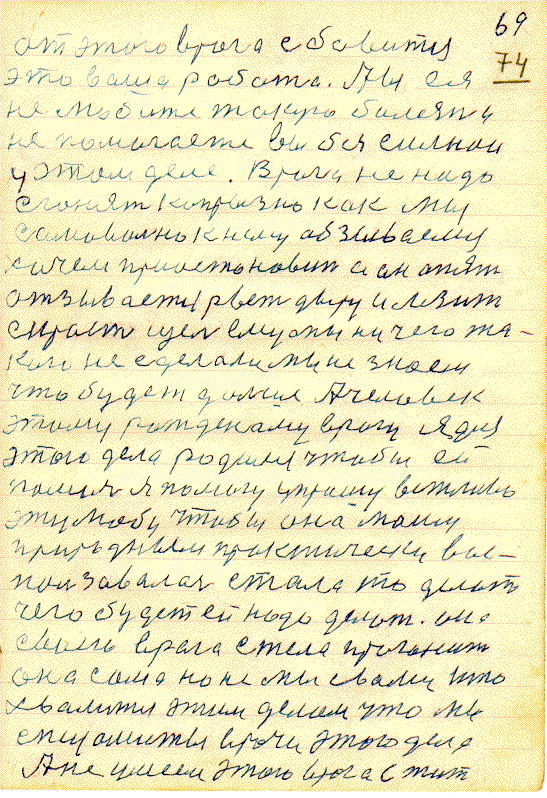 69
от этого врага сбавится
74
это ваша работа. Мы ея
не любите такую болезнь
не помогаете вы без силной
у этом деле. Врага не надо
сгонят капризно как мы
самоволно к нему обзываемся
хочем приостановит а он опят
отзывается рвет дыру и лезит
играет щел ему мы ничего та-
кого не сделали мы не знаем
что будет далше А человек
этому рожденаму врагу я для
этого дела родился чтобы ей
помоч я помогу упрошу вежливо
эту любу чтобы она моим
природным практически вос-
ползавалас стала то делат
чего будет ей надо делат. она
своего врага с тела прогонит
она сама но не мы с вами что
хвалимся этим делом что мы
специалисты врачи этого дела
А не умеем этого врага с тит